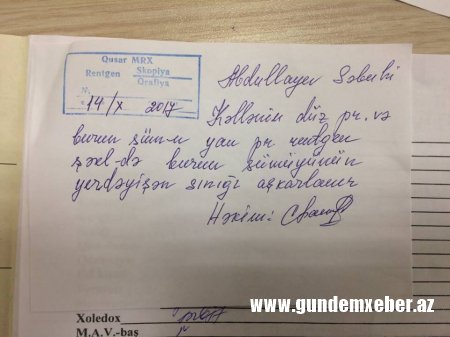 Qusar MRX
Rentgen Skopiya
Qrafiya
N.
"14/X 2017
Abdullayev Səbuhi
Kəllənin düz pr. və
burun süm-n yan pr. rentgen
şəkl-də burun sümüyünün
yerdəyişən sınığı aşkarlanır
Həkim:
www.gundemxeber.az
Xoledox
M.A.V.-baş